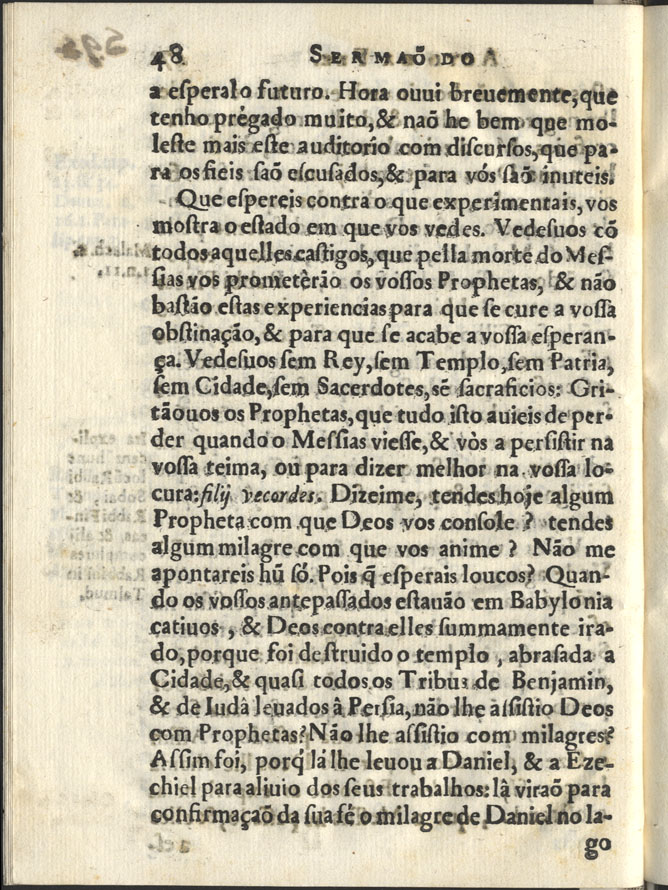 48 SERMAÕ DO
a eſperalo futuro. Hora ouui breuemente, que
tenho prégado muito, & naõ he bem que mo-
leſte mais eſte auditorio com diſcurſos, que pa-
ra os fieis ſaõ eſcuſados, & para vós ſaõ inuteis.
Que eſpereis contra o que experimentais, vos
moſtra o eſtado em que vos vedes. Vedeſuos cõ
todos aquelles caſtigos, que pella morte do Meſ-
ſias vos prometèrão os voſſos Prophetas, & não
baſtão eſtas experiencias para que ſe cure a voſſa
obſtinação, & para que ſe acabe a voſſa eſperan-
ça. Vedeſuos ſem Rey, ſem Templo, ſem Patria,
ſem Cidade, ſem Sacerdotes, sẽ ſacraficios: Gri-
tãouos os Prophetas, que tudo iſto auieis de per-
der quando o Meſſias vieſſe, & vòs a perſiſtir na
voſſa teima, ou para dizer melhor na voſſa lo-
cura: filij vecordes. Dizeime, tendes hoje algum
Propheta com que Deos vos conſole ? tendes
algum milagre com que vos anime ? Não me
apontareis hũ ſó. Pois q̃ eſperais loucos? Quan-
do os voſſos antepaſſados eſtauão em Babylonia
catiuos , & Deos contra elles ſummamente ira-
do, porque foi deſtruido o templo , abraſada a
Cidade, & quaſi todos os Tribus de Benjamin,
& de Iudà leuados à Perſia, não lhe aſſiſtio Deos
com Prophetas? Não lhe aſſiſtio com milagres?
Aſſim foi, porq́ lá lhe leuou a Daniel, & a Eze-
chiel para aliuio dos ſeus trabalhos: là viraõ para
confirmaçaõ da ſua fé o milagre de Daniel no la-
go